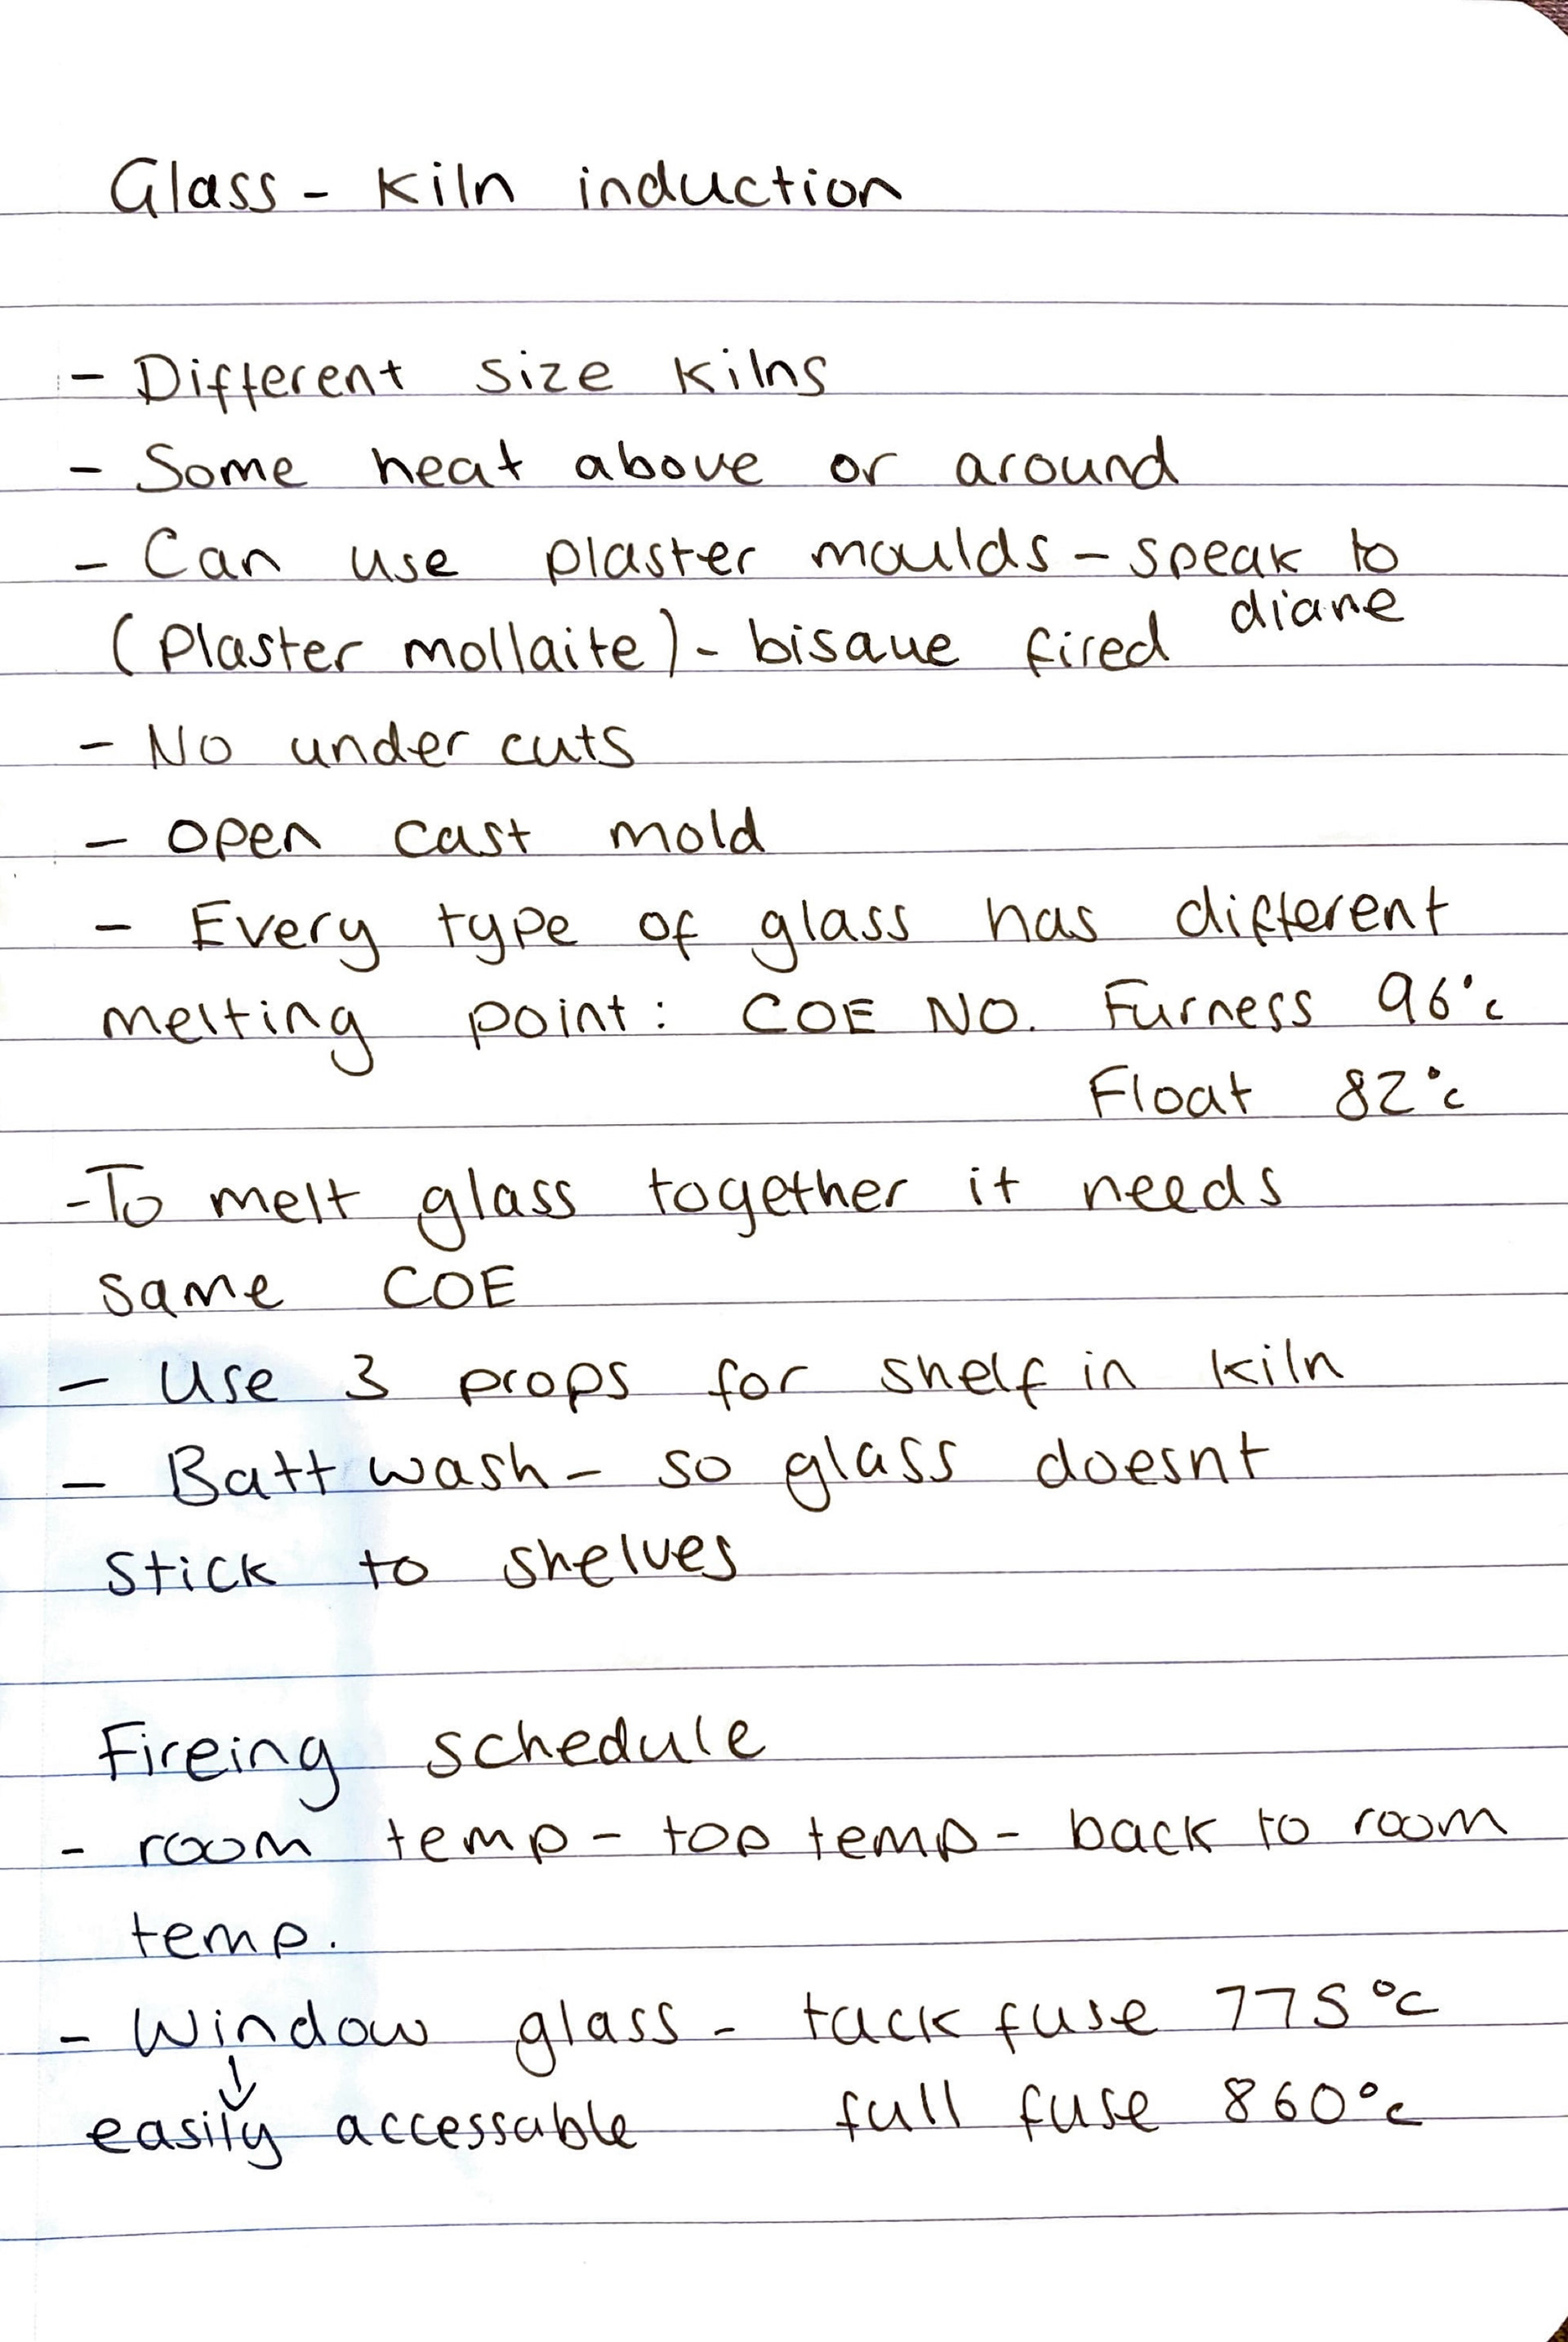 Glass - Kiln induction
- Different size kilns
- Some heat above or around
- Can use plaster moulds - speak to
diane
(Plaster mollaite) - bisque fired
- No under cuts
- open cast mold
- Every type of glass has different
melting point: COE NO. Furness 96°c
Float 82°c
- To melt glass together it needs
same COE
- Use 3 props for shelf in kiln
- Batt wash - so glass doesnt
stick to shelves
Fireing schedule
- room temp - top temp - back to room
temp.
- Window glass - tack fuse 775°c
↓
easily accessable full fuse 860°c